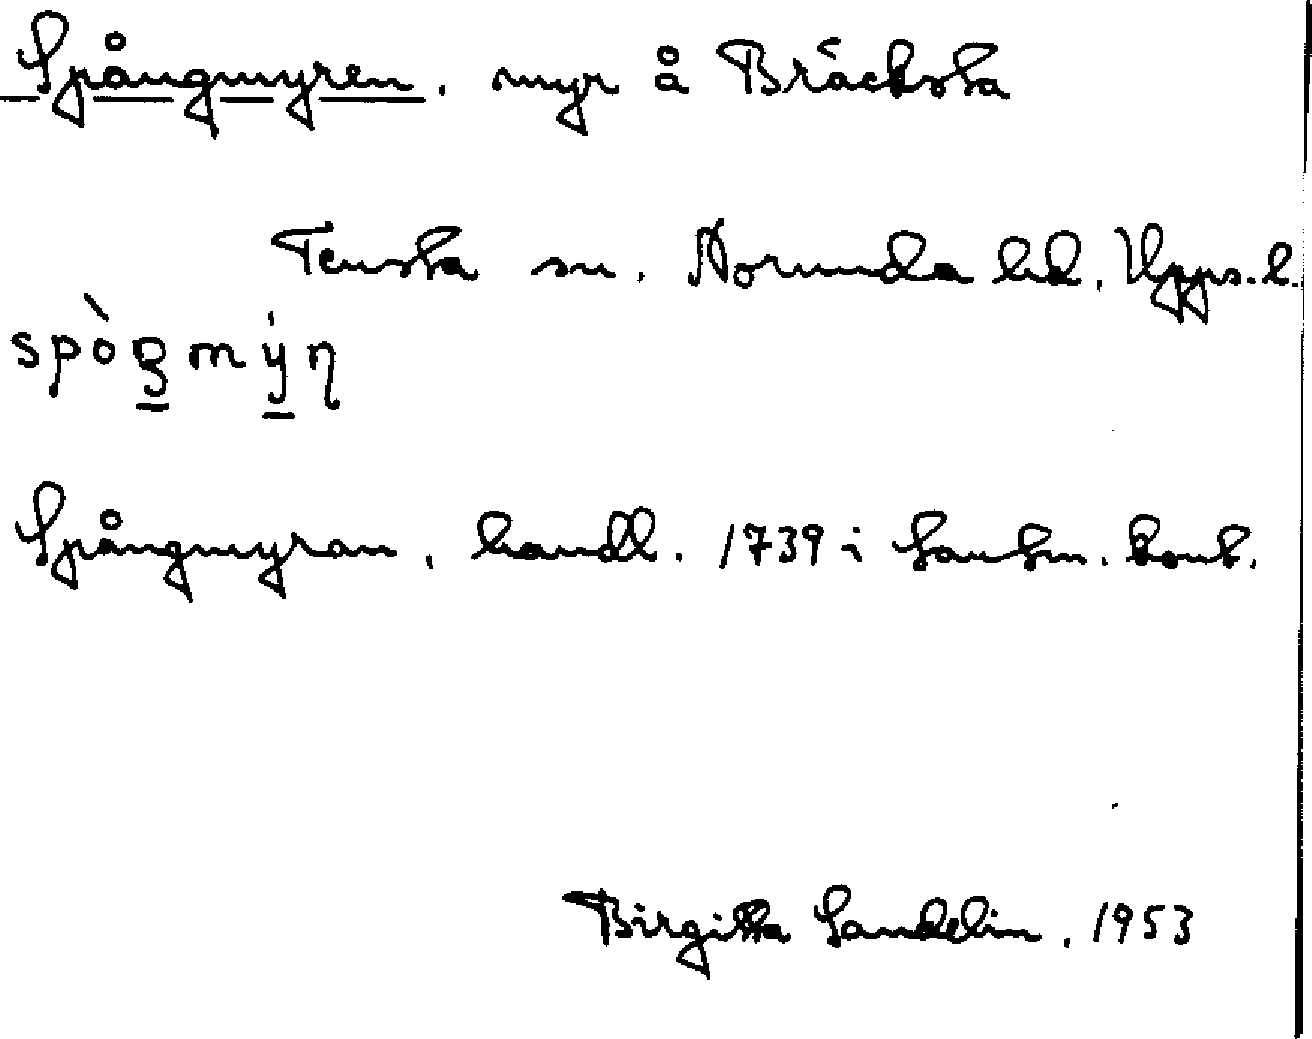 Spångmyren, myr å Bräcksta
Tensta sn. Norunda hd, Upps. l.
Spångmyran, handl. 1739 i Lantm. kont.
Birgitta Sandelin, 1953